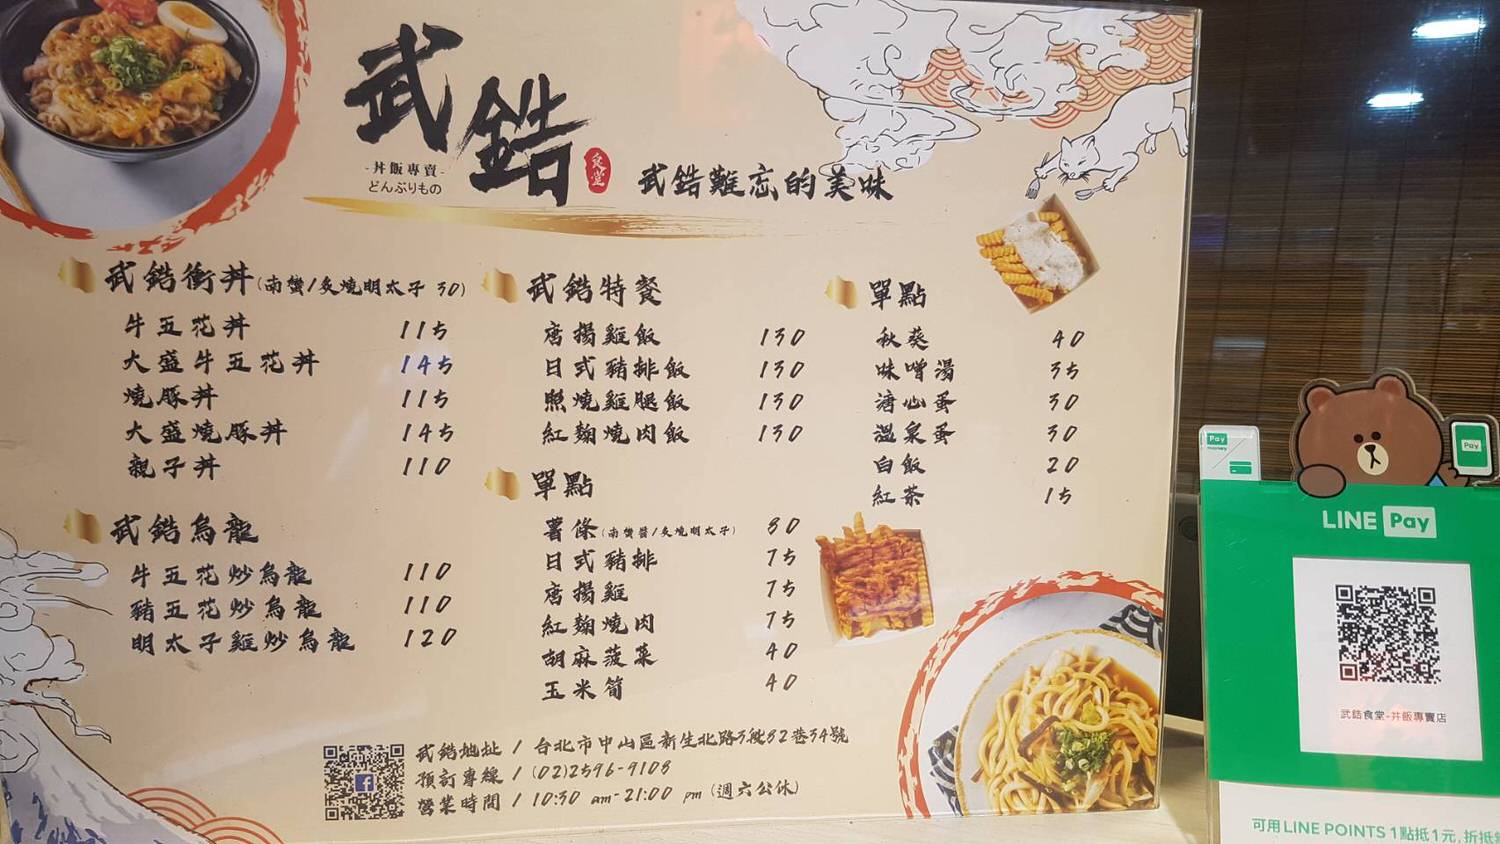 武鋯
食堂
-丼飯專賣-
どんぶりもの
武鋯難忘的美味
武鋯衝丼(南蠻/炙燒明太子 30)
牛五花丼 115
大盛牛五花丼 145
燒豚丼 115
大盛燒豚丼 145
親子丼 110
武鋯烏龍
牛五花炒烏龍 110
豬五花炒烏龍 110
明太子雞炒烏龍 120
武鋯特餐
唐揚雞飯 130
日式豬排飯 130
照燒雞腿飯 130
紅麴燒肉飯 130
單點
薯條(南蠻醬/炙燒明太子) 80
日式豬排 75
唐揚雞 75
紅麴燒肉 75
胡麻菠菜 40
玉米筍 40
單點
秋葵 40
味噌湯 35
溏心蛋 30
溫泉蛋 30
白飯 20
紅茶 15
武鋯地址 / 台北市中山區新生北路3段82巷34號
預訂專線 / (02)2596-9108
營業時間 / 10:30 am-21:00 pm (週六公休)
Pay
money
Pay
LINE Pay
武鋯食堂-丼飯專賣店
可用LINE POINTS 1點抵1元,折抵